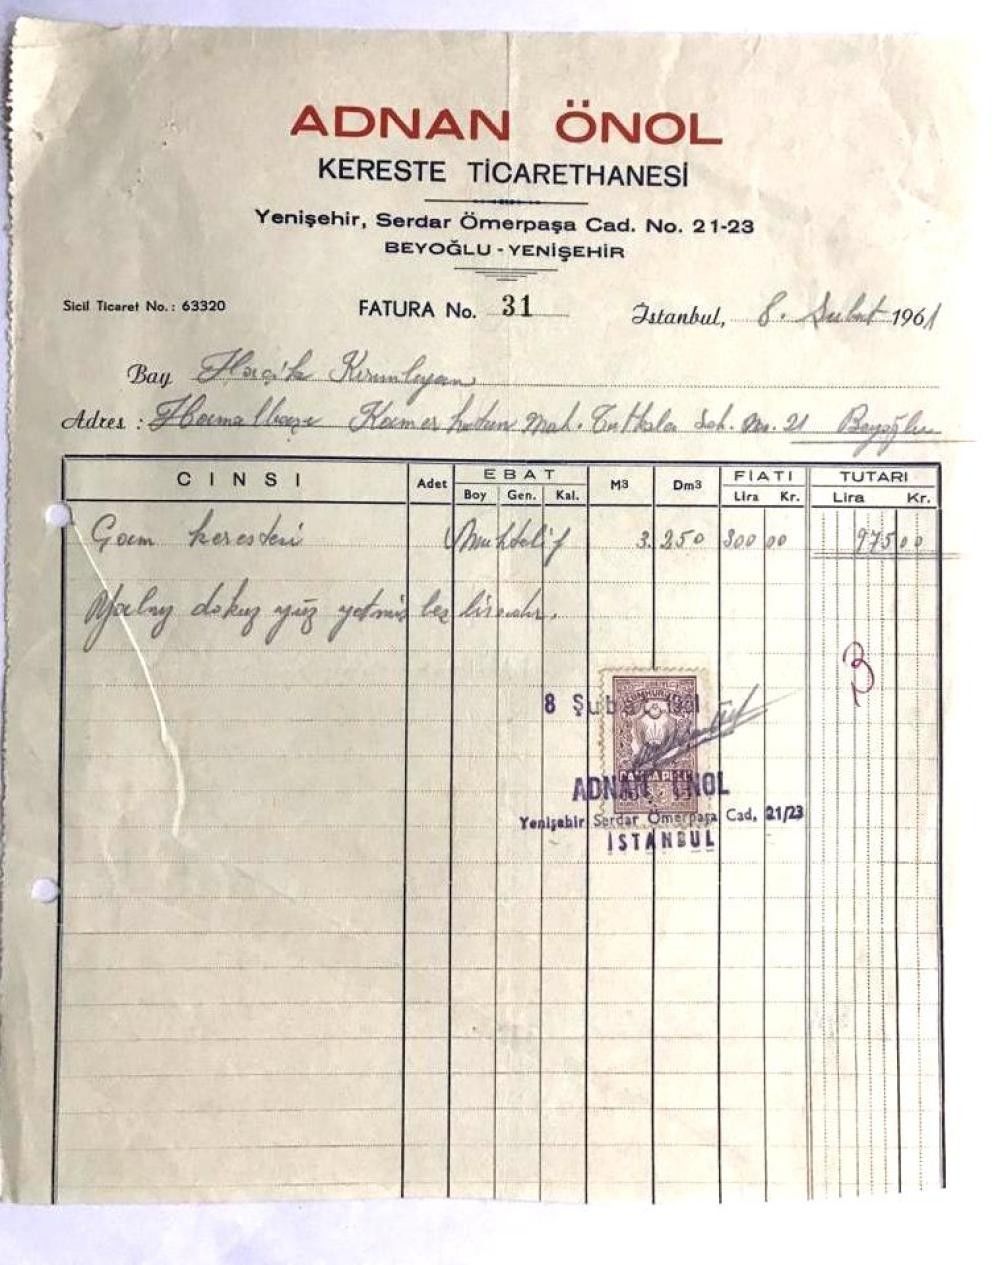 ADNAN ÖNOL
KERESTE TİCARETHANESİ
Yenişehir, Serdar Ömerpaşa Cad. No. 21-23
BEYOĞLU - YENİŞEHİR
Sicil Ticaret No.: 63320 FATURA No. 31 İstanbul, 8. Şubat 1961
Bay Haçik Kırımlıyan
Adres : Hamalbaşı Kamer hatun Mah. Sok. No. 21 Beyoğlu
CİNSİ Adet EBAT M3 Dm3 FİATI TUTARI
Boy Gen. Kal. Lira Kr. Lira Kr.
Çam kerestesi Muhtelif 3. 250 300 00 975 00
Yalnız dokuz yüz yetmiş beş liradır.
8 Şubat 1961
ADNAN ÖNOL
Yenişehir Serdar Ömerpaşa Cad, 21/23
İSTANBUL